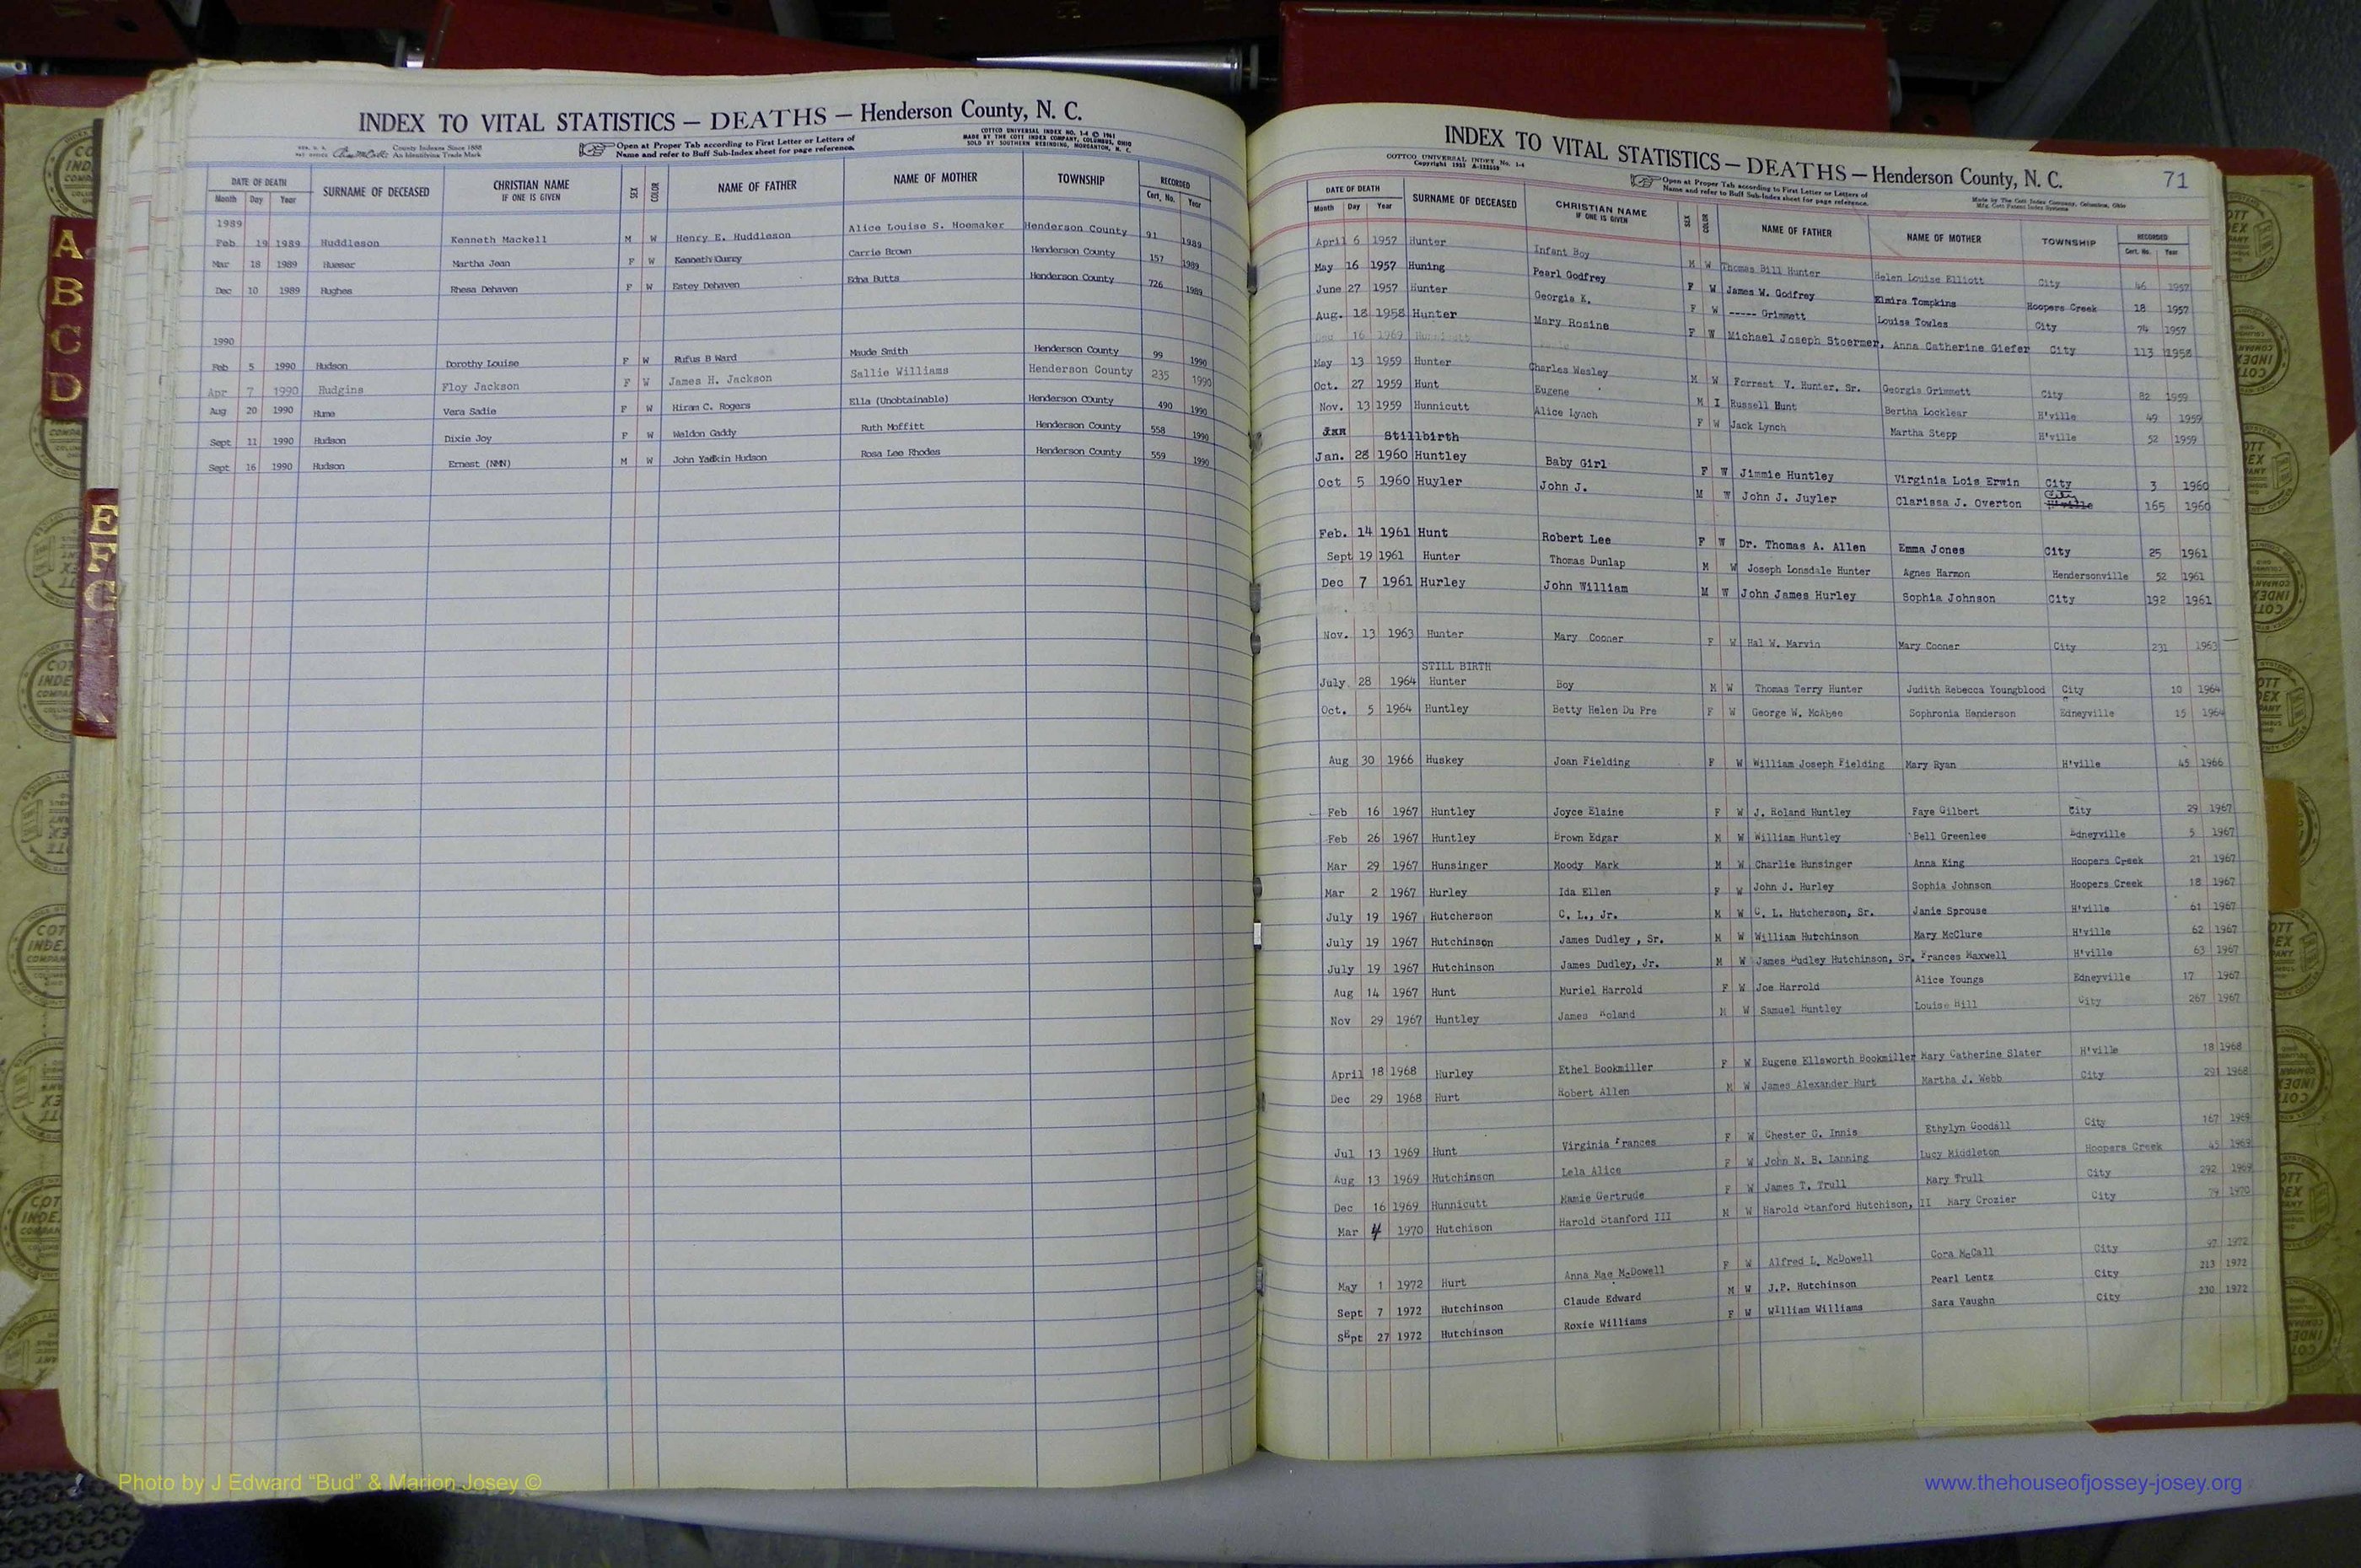 INDEX TO VITAL STATISTICS — DEATHS — Henderson County, N. C.
County Indexes Since 1888
An Identifying Trade Mark
Open at Proper Tab according to First Letter or Letters of
Name and refer to Buff Sub-Index sheet for page reference.
COTTCO UNIVERSAL INDEX NO. 1-4 © 1961
MADE BY THE COTT INDEX COMPANY, COLUMBUS, OHIO
SOLD BY SOUTHERN REBINDING, MORGANTON, N. C.
DATE OF DEATH SURNAME OF DECEASED CHRISTIAN NAME IF ONE IS GIVEN SEX COLOR NAME OF FATHER NAME OF MOTHER TOWNSHIP RECORDED
Month Day Year Cert. No. Year
1989
Feb 19 1989 Huddleson Kenneth Mackell M W Henry E. Huddleson Alice Louise S. Hoemaker Henderson County 91 1989
Mar 18 1989 Hueser Martha Jean F W Kenneth Curry Carrie Brown Henderson County 157 1989
Dec 10 1989 Hughes Rhesa Dehaven F W Estey Dehaven Edna Butts Henderson County 726 1989
1990
Feb 5 1990 Hudson Dorothy Louise F W Rufus B Ward Maude Smith Henderson County 99 1990
Apr 7 1990 Hudgins Floy Jackson F W James H. Jackson Sallie Williams Henderson County 235 1990
Aug 20 1990 Hume Vera Sadie F W Hiram C. Rogers Ella (Unobtainable) Henderson County 490 1990
Sept 11 1990 Hudson Dixie Joy F W Weldon Gaddy Ruth Moffitt Henderson County 558 1990
Sept 16 1990 Hudson Ernest (NMN) M W John Yadkin Hudson Rosa Lee Rhodes Henderson County 559 1990
INDEX TO VITAL STATISTICS — DEATHS — Henderson County, N. C. 71
COTTCO UNIVERSAL INDEX No. 1-4
Open at Proper Tab according to First Letter or Letters of
Name and refer to Buff Sub-Index sheet for page reference.
Made by The Cott Index Company, Columbus, Ohio
DATE OF DEATH SURNAME OF DECEASED CHRISTIAN NAME IF ONE IS GIVEN SEX COLOR NAME OF FATHER NAME OF MOTHER TOWNSHIP RECORDED
Month Day Year Cert. No. Year
April 6 1957 Hunter Infant Boy M W Thomas Bill Hunter Helen Louise Elliott City 46 1957
May 16 1957 Huning Pearl Godfrey F W James W. Godfrey Elmira Tompkins Hoopers Creek 18 1957
June 27 1957 Hunter Georgia K. F W ----- Grimmett Louisa Towles City 74 1957
Aug. 18 1958 Hunter Mary Rosine F W Michael Joseph Stoermer, Anna Catherine Giefer City 113 1958
16 1969 Hunnicutt
May 13 1959 Hunter Charles Wesley M W Forrest V. Hunter, Sr. Georgia Grimmett City 82 1959
Oct. 27 1959 Hunt Eugene M I Russell Hunt Bertha Locklear H'ville 49 1959
Nov. 13 1959 Hunnicutt Alice Lynch F W Jack Lynch Martha Stepp H'ville 52 1959
Stillbirth
Jan. 28 1960 Huntley Baby Girl F W Jimmie Huntley Virginia Lois Erwin City 3 1960
Oct 5 1960 Huyler John J. M W John J. Juyler Clarissa J. Overton City H'ville 165 1960
Feb. 14 1961 Hunt Robert Lee F W Dr. Thomas A. Allen Emma Jones City 25 1961
Sept 19 1961 Hunter Thomas Dunlap M W Joseph Lonsdale Hunter Agnes Harmon Hendersonville 52 1961
Dec 7 1961 Hurley John William M W John James Hurley Sophia Johnson City 192 1961
Nov. 13 1963 Hunter Mary Cooner F W Hal W. Marvin Mary Cooner City 231 1963
STILL BIRTH
July 28 1964 Hunter Boy M W Thomas Terry Hunter Judith Rebecca Youngblood City 10 1964
Oct. 5 1964 Huntley Betty Helen Du Pre F W George W. McAbee Sophronia Henderson Edneyville 15 1964
Aug 30 1966 Huskey Joan Fielding F W William Joseph Fielding Mary Ryan H'ville 45 1966
Feb 16 1967 Huntley Joyce Elaine F W J. Roland Huntley Faye Gilbert City 29 1967
Feb 26 1967 Huntley Brown Edgar M W William Huntley Bell Greenlee Edneyville 5 1967
Mar 29 1967 Hunsinger Moody Mark M W Charlie Hunsinger Anna King Hoopers Creek 21 1967
Mar 2 1967 Hurley Ida Ellen F W John J. Hurley Sophia Johnson Hoopers Creek 18 1967
July 19 1967 Hutcherson C. L., Jr. M W C. L. Hutcherson, Sr. Janie Sprouse H'ville 61 1967
July 19 1967 Hutchinson James Dudley , Sr. M W William Hutchinson Mary McClure H'ville 62 1967
July 19 1967 Hutchinson James Dudley, Jr. M W James Dudley Hutchinson, Sr. Frances Maxwell H'ville 63 1967
Aug 14 1967 Hunt Muriel Harrold F W Joe Harrold Alice Youngs Edneyville 17 1967
Nov 29 1967 Huntley James Roland M W Samuel Huntley Louise Hill City 267 1967
April 18 1968 Hurley Ethel Bookmiller F W Eugene Ellsworth Bookmiller Mary Catherine Slater H'ville 18 1968
Dec 29 1968 Hurt Robert Allen M W James Alexander Hurt Martha J. Webb City 291 1968
Jul 13 1969 Hunt Virginia Frances F W Chester C. Innis Ethylyn Goodall City 167 1969
Aug 13 1969 Hutchinson Lela Alice F W John N. B. Lanning Lucy Middleton Hoopers Creek 45 1969
Dec 16 1969 Hunnicutt Mamie Gertrude F W James T. Trull Mary Trull City 292 1969
Mar 4 1970 Hutchison Harold Stanford III M W Harold Stanford Hutchison, II Mary Crozier City 79 1970
May 1 1972 Hurt Anna Mae McDowell F W Alfred L. McDowell Cora McCall City 97 1972
Sept 7 1972 Hutchinson Claude Edward M W J.P. Hutchinson Pearl Lentz City 213 1972
SEpt 27 1972 Hutchinson Roxie Williams F W William Williams Sara Vaughn City 230 1972
A
B
C
D
E
F
G
Photo by J Edward “Bud” & Marion Josey ©
www.thehouseofjossey-josey.org